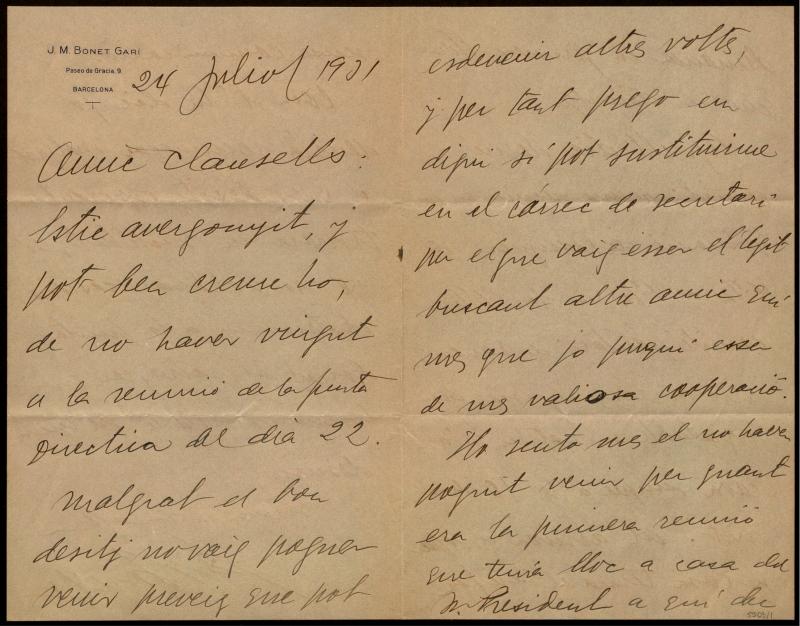 J. M. BONET GARÍ
Paseo de Gracia, 9.
BARCELONA
24 Juliol 1931
Amic Clausells:
Estic avergonyit, y
pot ben creure ho,
de no haver vingut
a la reunió de la Junta
Directiva del dia 22.
Malgrat el bon
desitj no vaig poguer
venir preveig que pot
esdevenir altres volts,
y per tant prego em
digui si pot sustituirme
en el cárrec de secretari
per el que vaig esser elegit
buscant altre amic qui
mes que jo pugui esser
de mes valiosa cooperació.
Ho sento mes el no haver
pogut venir per quant
era la primera reunió
que tenia lloc a casa del
Sr. President a qui de
5503/1